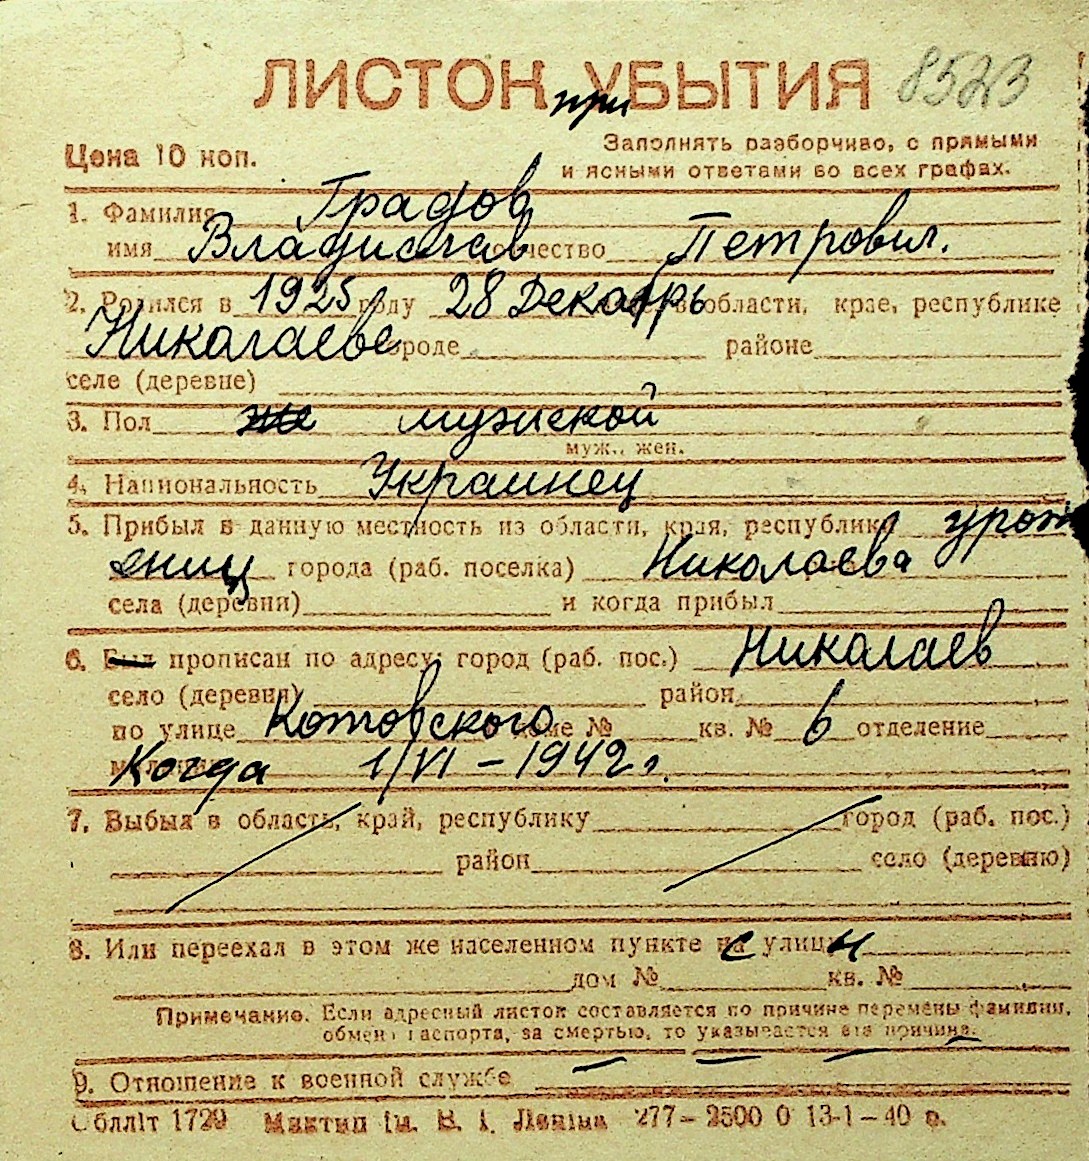 ЛИСТОК УБЫТИЯ 8523
при
Цена 10 коп.
Заполнять разборчиво, с прямыми
и ясными ответами во всех графах.
1. Фамилия Градов
имя Владислав отчество Петрович.
2. Родился в 1925 году 28 Декабрь в области, крае, республике
Николаеве городе районе
селе (деревне)
3. Пол мужской
муж., жен.
4. Национальность Украинец
5. Прибыл в данную местность из области, края, республики урож
ениц города (раб. поселка) Николаева
села (деревни) и когда прибыл
6. Был прописан по адресу: город (раб. пос.) Николаев
село (деревня) район
по улице Котовского доме № кв. № 6 отделение
Когда 1/VI – 1942 г.
7. Выбыл в область, край, республику город (раб. пос.)
район село (деревню)
8. Или переехал в этом же населенном пункте с улицы
дом № кв. №
Примечание. Если адресный листок составляется по причине перемены фамилии,
обмена паспорта, за смертью, то указывается эта причина.
9. Отношение к военной службе
Обллiт 1729 Миктип iм. В. I. Ленiна 277 – 2500 0 13-1 – 40 р.